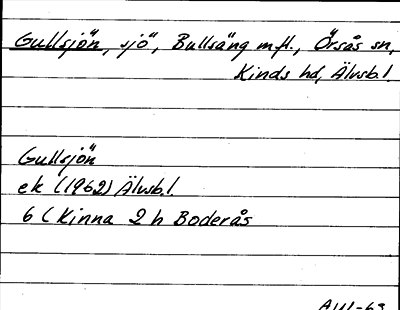 Gullsjön, sjö, Bullsäng m.fl., Örsås sn,
Kinds hd, Älvsb.l.
Gullsjön
ek (1962) Älvsb.l.
6 C Kinna 2 h Boderås